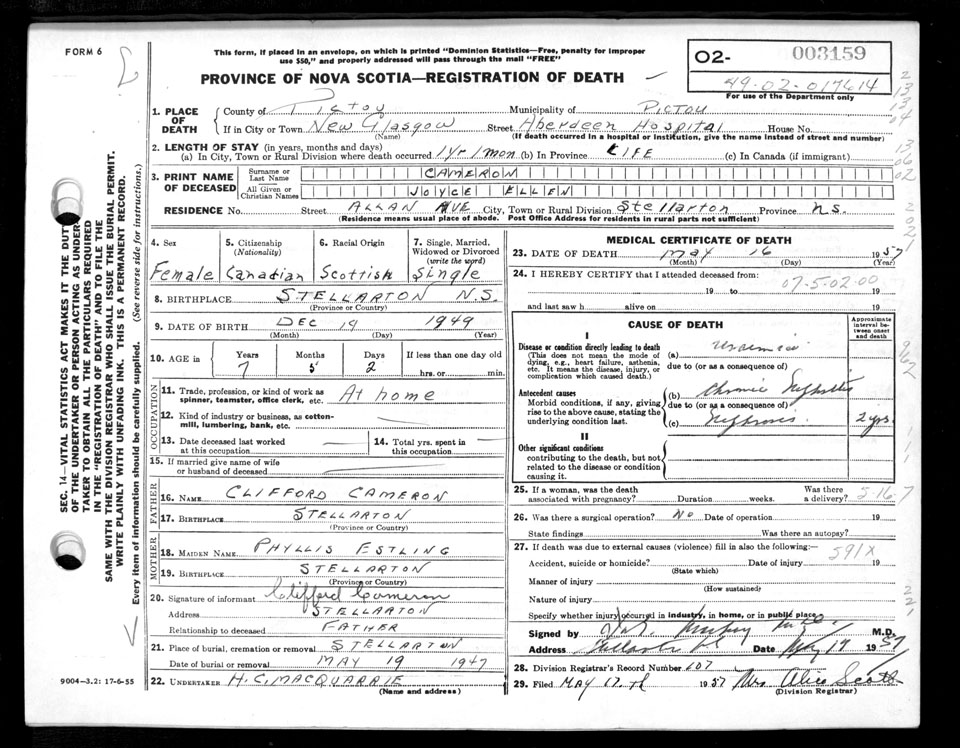 FORM 6
This form, if placed in an envelope, on which is printed "Dominion Statistics—Free, penalty for improper
use $50," and properly addressed will pass through the mail "FREE"
PROVINCE OF NOVA SCOTIA—REGISTRATION OF DEATH
02- 003159
49-02-017614
For use of the Department only
1. PLACE OF DEATH
County of Pictou Municipality of PICTOU
If in City or Town New Glasgow Street Aberdeen Hospital House No.
(Name) (If death occurred in a hospital or institution, give the name instead of street and number)
2. LENGTH OF STAY (in years, months and days)
(a) In City, Town or Rural Division where death occurred 1 yr 1 mon (b) In Province LIFE (c) In Canada (if immigrant)
3. PRINT NAME OF DECEASED
Surname or Last Name CAMERON
All Given or Christian Names JOYCE ELLEN
RESIDENCE No. Street ALLAN AVE City, Town or Rural Division Stellarton Province N.S.
(Residence means usual place of abode. Post Office Address for residents in rural parts not sufficient)
4. Sex
Female
5. Citizenship
(Nationality)
Canadian
6. Racial Origin
Scottish
7. Single, Married,
Widowed or Divorced
(write the word)
Single
8. BIRTHPLACE STELLARTON N.S.
(Province or Country)
9. DATE OF BIRTH DEC 19 1949
(Month) (Day) (Year)
10. AGE in Years Months Days If less than one day old
7 5 2 hrs. or min.
OCCUPATION
11. Trade, profession, or kind of work as
spinner, teamster, office clerk, etc. At home
12. Kind of industry or business, as cotton-
mill, lumbering, bank, etc.
13. Date deceased last worked
at this occupation
14. Total yrs. spent in
this occupation
15. If married give name of wife
or husband of deceased
FATHER
16. NAME CLIFFORD CAMERON
17. BIRTHPLACE STELLARTON
(Province or Country)
MOTHER
18. MAIDEN NAME PHYLLIS ESTLING
19. BIRTHPLACE STELLARTON
(Province or Country)
20. Signature of informant Clifford Cameron
Address STELLARTON
Relationship to deceased FATHER
21. Place of burial, cremation or removal STELLARTON
Date of burial or removal MAY 19 1947
22. UNDERTAKER H.C. MACQUARRIE
(Name and address)
9004—3.2: 17-6-55
MEDICAL CERTIFICATE OF DEATH
23. DATE OF DEATH May 16 1957
(Month) (Day) (Year)
24. I HEREBY CERTIFY that I attended deceased from:
07-5-02-00
19 to 19
and last saw h alive on 19
CAUSE OF DEATH
Approximate interval between onset and death
I
Disease or condition directly leading to death
(This does not mean the mode of
dying, e.g., heart failure, asthenia,
etc. It means the disease, injury, or
complication which caused death.)
(a) Uraemia
due to (or as a consequence of)
Antecedent causes
Morbid conditions, if any, giving
rise to the above cause, stating the
underlying condition last.
(b) Chronic Nephritis
due to (or as a consequence of)
(c) Nephrosis 2 yrs.
II
Other significant conditions
contributing to the death, but not
related to the disease or condition
causing it.
25. If a woman, was the death
associated with pregnancy? Duration weeks. Was there a delivery?
5-16-7
26. Was there a surgical operation? No Date of operation 19
State findings Was there an autopsy?
27. If death was due to external causes (violence) fill in also the following:—
591X
Accident, suicide or homicide? Date of injury 19
(State which)
Manner of injury
(How sustained)
Nature of injury
Specify whether injury occured in industry, in home, or in public place
Signed by M.D.
Address Date May 17 1957
28. Division Registrar's Record Number 107
29. Filed MAY 17th 1957 Mrs Alice Scott
(Division Registrar)
SEC. 14—VITAL STATISTICS ACT MAKES IT THE DUTY
OF THE UNDERTAKER OR PERSON ACTING AS UNDER-
TAKER TO OBTAIN ALL THE PARTICULARS REQUIRED
IN THE "REGISTRATION OF DEATH" AND TO FILE THE
SAME WITH THE DIVISION REGISTRAR WHO SHALL ISSUE THE BURIAL PERMIT.
WRITE PLAINLY WITH UNFADING INK. THIS IS A PERMANENT RECORD.
Every item of information should be carefully supplied. (See reverse side for instructions.)